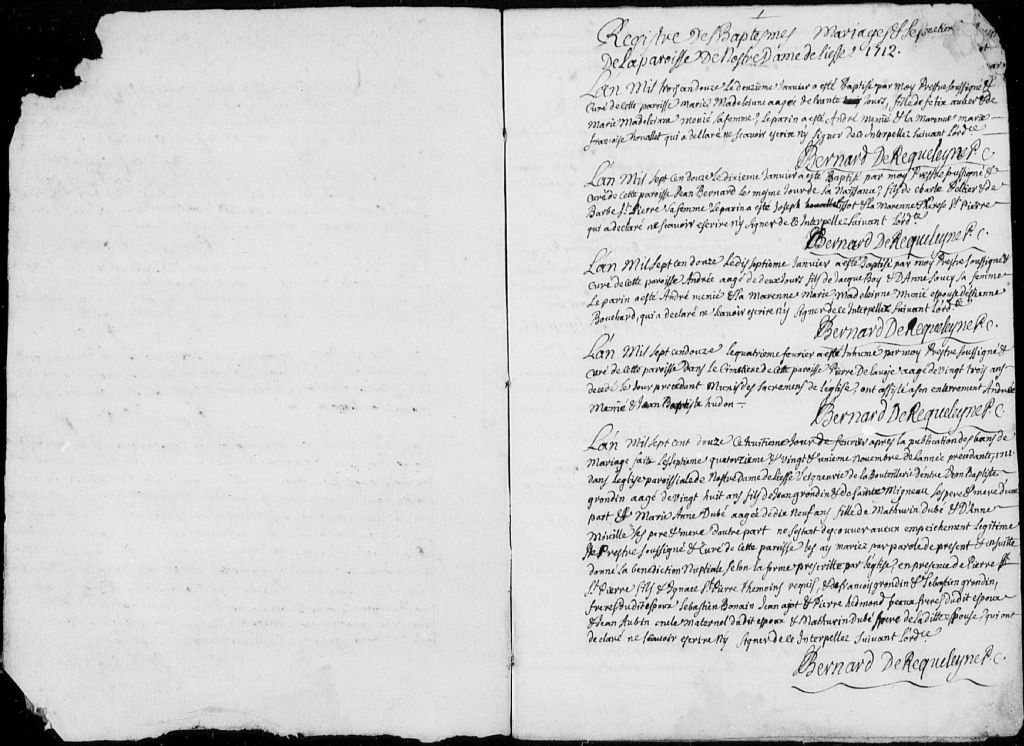 Registre Des Baptesmes Mariages & Sepulture
De la paroisse De Nostre Dame de liesse 1712.
Lan Mil douze Le deuzieme Janvier a esté Baptisé par moy Prestre soussigné &
Curé de cette paroisse Marie Madeleinne aagée de trante Jours, fille de felix auber & de
Marie Madeleine menié sa femme, Le parin a esté André Menié & la Marenne marie
francoise houallet qui a declaré ne scavoir escrire ny signer de ce Interpellez suivant Lord.ce
Bernard De Requeleyne P. C.
Lan Mil sept cen douze Le dixieme Janvier a esté Baptisé par moy Prestre soussigné &
curé de cette paroisse Jean Bernard le mesme Jour de sa Naissance, fils de charle Peltier & de
Barbe St Pierre sa femme Le parin a esté Joseph & la marenne Therese St Pierre
qui a declaré ne scavoir escrire ny signer de ce Interpellez suivant Lord.ce
Bernard De Requeleyne P. C.
Lan Mil sept cen douze Le disseptieme Janvier a esté Baptisé par moy Prestre soussigné &
Curé de cette paroisse Andrée aagé de deux Jours fils de Jacque Boy & D'Anne Soucy sa femme
Le parin a esté André menié & la Marenne Marie Madeleinne Menié espouse d'estienne
Bouchard, qui a declaré ne scavoir escrire ny signer de ce Interpellez suivant Lord.ce
Bernard De Requeleyne P. C.
Lan Mil sept cen douze le quatrieme fevrier a esté Inhumé par moy Prestre soussigné &
curé de cette paroisse dans le Cimetiere de cette paroisse Pierre De lavoye aagé de vingt trois ans
decedé le Jour precedant Munis des sacremens de leglise, ont assisté a son enterrement André
Menié & Jean Baptiste hudon
Bernard De Requeleyne P. C.
Lan Mil sept cent douze Ce huitieme Jour de fevrier apres la publication des bans de
Mariage faite le septieme quatorzieme & vingt & unieme Novembre de lannée precedente,
dans leglise paroissiale de Nostre Dame de liesse seigneurie de la Bouteillerie d'entre Jean Baptiste
grondin aagé de vingt huit ans fils de Jean grondin & de sainte Migneau ses pere & mere d'une
part & Marie Anne Dubé aagée de dix Neuf ans fille de Mathurin Dubé & D'Anne
Miville ses pere & mere d'autre part ne sestant descouver aucun empeichement legitime
Je Prestre soussigné & Curé de cette paroisse les ay mariez par parole de present & ensuitte
donné la benediction Nuptiale selon la forme prescritte par leglise, en presence de Pierre
St Pierre fils & Ignace St Pierre themoins requis, & de francois grondin & sebastien grondin,
freres dudit espoux sebastien Bonain Jean ayot & Pierre hedmond beaux freres dudit espoux
& Jean Aubin oncle Maternel dudit espoux & Mathurin Dubé frere de ladite espouse, qui ont
declaré ne scavoir escrire ny signer de ce Interpellez suivant Lord.ce
Bernard De Requeleyne P. C.